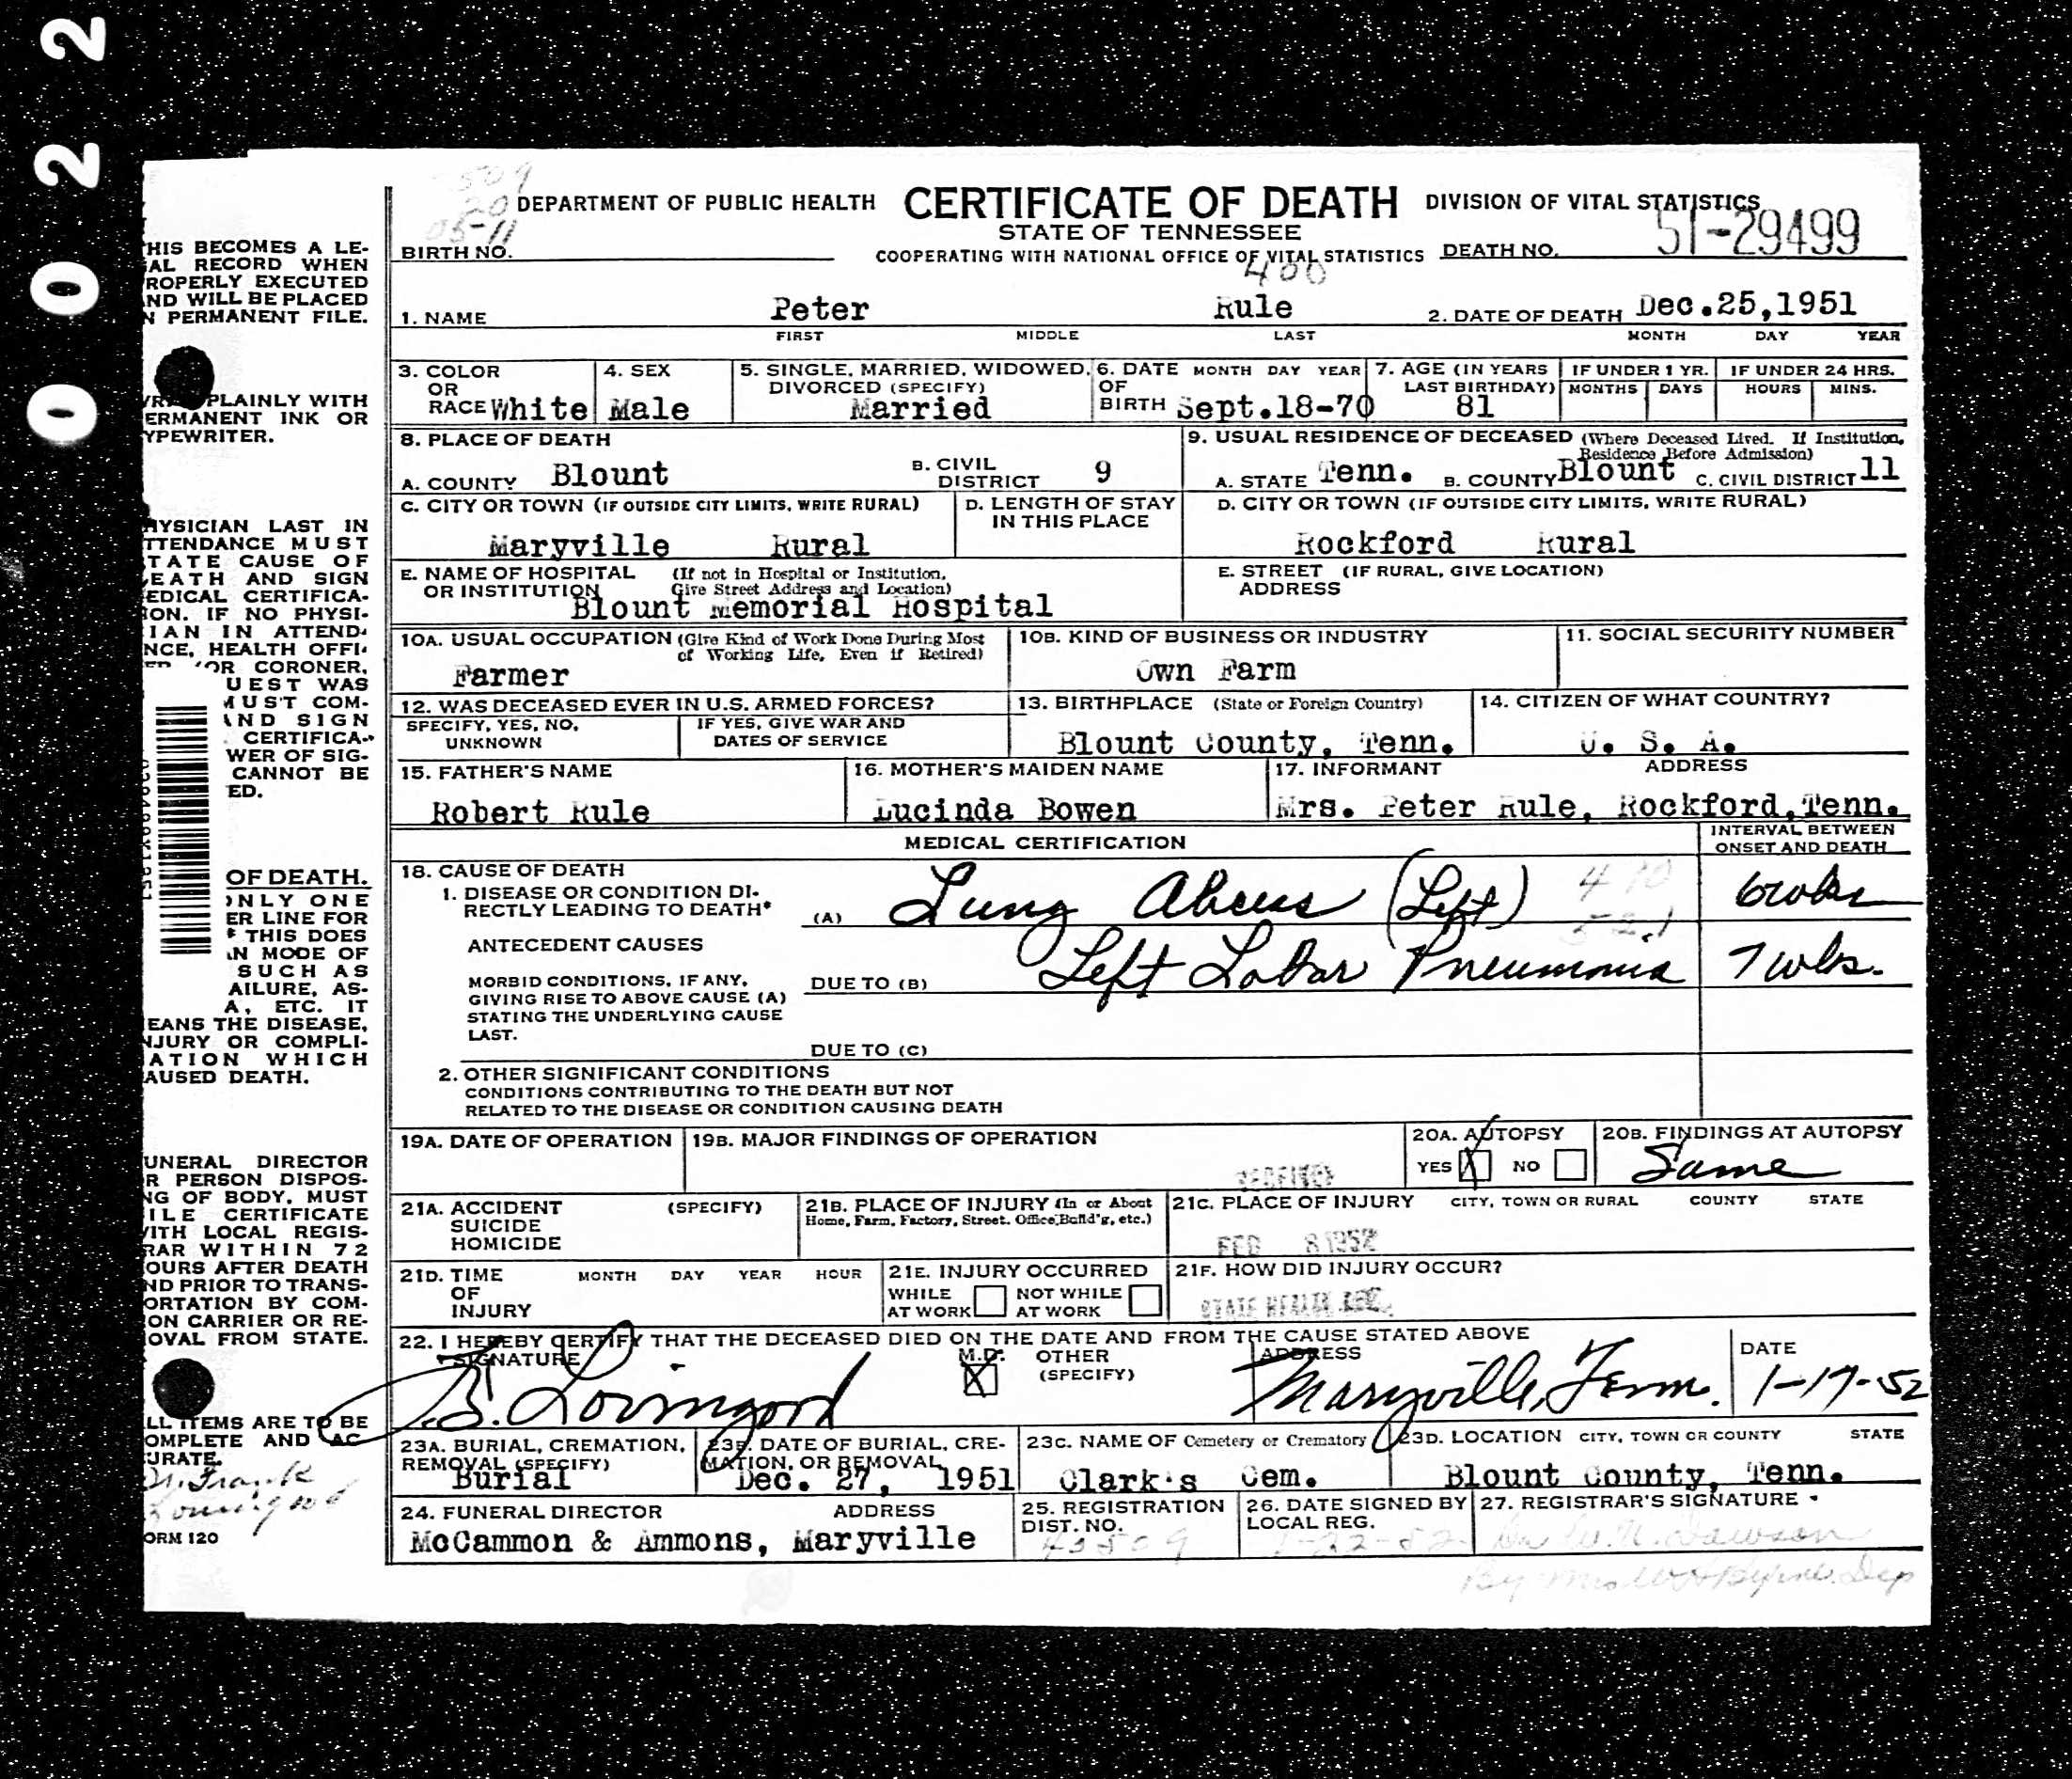 0022
509
20
05-11
DEPARTMENT OF PUBLIC HEALTH CERTIFICATE OF DEATH DIVISION OF VITAL STATISTICS
STATE OF TENNESSEE
COOPERATING WITH NATIONAL OFFICE OF VITAL STATISTICS
BIRTH NO.
DEATH NO. 51-29499
400
1. NAME Peter Rule 2. DATE OF DEATH Dec.25,1951
FIRST MIDDLE LAST MONTH DAY YEAR
3. COLOR OR RACE White
4. SEX Male
5. SINGLE, MARRIED, WIDOWED, DIVORCED (SPECIFY) Married
6. DATE OF BIRTH MONTH DAY YEAR Sept.18-70
7. AGE (IN YEARS LAST BIRTHDAY) 81
IF UNDER 1 YR. MONTHS DAYS
IF UNDER 24 HRS. HOURS MINS.
8. PLACE OF DEATH
A. COUNTY Blount B. CIVIL DISTRICT 9
9. USUAL RESIDENCE OF DECEASED (Where Deceased Lived. If Institution, Residence Before Admission)
A. STATE Tenn. B. COUNTY Blount C. CIVIL DISTRICT 11
C. CITY OR TOWN (IF OUTSIDE CITY LIMITS, WRITE RURAL)
Maryville Rural
D. LENGTH OF STAY IN THIS PLACE
D. CITY OR TOWN (IF OUTSIDE CITY LIMITS, WRITE RURAL)
Rockford Rural
E. NAME OF HOSPITAL OR INSTITUTION (If not in Hospital or Institution, Give Street Address and Location)
Blount Memorial Hospital
E. STREET ADDRESS (IF RURAL, GIVE LOCATION)
10A. USUAL OCCUPATION (Give Kind of Work Done During Most of Working Life, Even if Retired)
Farmer
10B. KIND OF BUSINESS OR INDUSTRY
Own Farm
11. SOCIAL SECURITY NUMBER
12. WAS DECEASED EVER IN U.S. ARMED FORCES?
SPECIFY, YES, NO, UNKNOWN
IF YES, GIVE WAR AND DATES OF SERVICE
13. BIRTHPLACE (State or Foreign Country)
Blount County, Tenn.
14. CITIZEN OF WHAT COUNTRY?
U. S. A.
15. FATHER'S NAME
Robert Rule
16. MOTHER'S MAIDEN NAME
Lucinda Bowen
17. INFORMANT ADDRESS
Mrs. Peter Rule, Rockford,Tenn.
MEDICAL CERTIFICATION
INTERVAL BETWEEN ONSET AND DEATH
18. CAUSE OF DEATH
1. DISEASE OR CONDITION DIRECTLY LEADING TO DEATH*
(A) Lung Abcess (Left) 6 wks
521
ANTECEDENT CAUSES
MORBID CONDITIONS, IF ANY, GIVING RISE TO ABOVE CAUSE (A) STATING THE UNDERLYING CAUSE LAST.
DUE TO (B) Left Lobar Pneumonia 7 wks.
DUE TO (C)
2. OTHER SIGNIFICANT CONDITIONS
CONDITIONS CONTRIBUTING TO THE DEATH BUT NOT
RELATED TO THE DISEASE OR CONDITION CAUSING DEATH
19A. DATE OF OPERATION
19B. MAJOR FINDINGS OF OPERATION
20A. AUTOPSY
YES X NO
20B. FINDINGS AT AUTOPSY
Same
RECEIVED
FEB 8 1952
STATE HEALTH DEPT.
21A. ACCIDENT SUICIDE HOMICIDE (SPECIFY)
21B. PLACE OF INJURY (In or About Home, Farm, Factory, Street, Office Build'g, etc.)
21C. PLACE OF INJURY CITY, TOWN OR RURAL COUNTY STATE
21D. TIME OF INJURY MONTH DAY YEAR HOUR
21E. INJURY OCCURRED
WHILE AT WORK NOT WHILE AT WORK
21F. HOW DID INJURY OCCUR?
22. I HEREBY CERTIFY THAT THE DECEASED DIED ON THE DATE AND FROM THE CAUSE STATED ABOVE
SIGNATURE M.D. X OTHER (SPECIFY) ADDRESS DATE
Lovingood Maryville, Tenn. 1-17-52
23A. BURIAL, CREMATION, REMOVAL (SPECIFY)
Burial
23B. DATE OF BURIAL, CREMATION, OR REMOVAL
Dec. 27, 1951
23C. NAME OF Cemetery or Crematory
Clark's Cem.
23D. LOCATION CITY, TOWN OR COUNTY STATE
Blount County, Tenn.
24. FUNERAL DIRECTOR ADDRESS
McCammon & Ammons, Maryville
25. REGISTRATION DIST. NO.
43509
26. DATE SIGNED BY LOCAL REG.
1-22-52
27. REGISTRAR'S SIGNATURE
Dawson
By Mrs W H Byrne. Dep
HIS BECOMES A LE-
AL RECORD WHEN
ROPERLY EXECUTED
ND WILL BE PLACED
N PERMANENT FILE.
PLAINLY WITH
ERMANENT INK OR
YPEWRITER.
HYSICIAN LAST IN
TTENDANCE MUST
TATE CAUSE OF
EATH AND SIGN
EDICAL CERTIFICA-
ION. IF NO PHYSI-
IAN IN ATTEND-
NCE, HEALTH OFFI-
OR CORONER,
UEST WAS
MUST COM-
AND SIGN
CERTIFICA-
WER OF SIG-
CANNOT BE
ED.
OF DEATH.
ONLY ONE
ER LINE FOR
* THIS DOES
AN MODE OF
SUCH AS
AILURE, AS-
A, ETC. IT
EANS THE DISEASE,
NJURY OR COMPLI-
ATION WHICH
AUSED DEATH.
UNERAL DIRECTOR
R PERSON DISPOS-
NG OF BODY, MUST
ILE CERTIFICATE
ITH LOCAL REGIS-
RAR WITHIN 72
OURS AFTER DEATH
ND PRIOR TO TRANS-
ORTATION BY COM-
ON CARRIER OR RE-
OVAL FROM STATE.
LL ITEMS ARE TO BE
OMPLETE AND AC-
URATE.
Dr. Frank
Lovingood
ORM 120